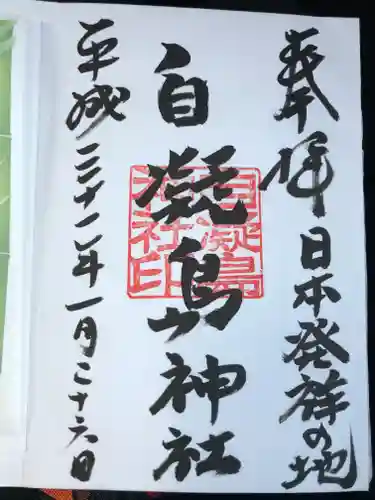 奉拝 日本発祥の地
自凝島神社
平成三十一年一月二十六日
自凝島神社印